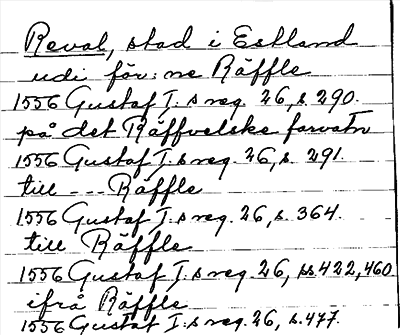 Reval, stad i Estland
udi för:ne Räffle
1556 Gustaf I:s reg. 26, s. 290.
på det Räffvelske farvatn
1556 Gustaf I:s reg. 26, s. 291.
till --- Räffle
1556 Gustaf I:s reg. 26, s. 364.
till Räffle
1556 Gustaf I:s reg. 26, ss. 422, 460.
ifrå Räffle
1556 Gustaf I:s reg. 26, s. 477.